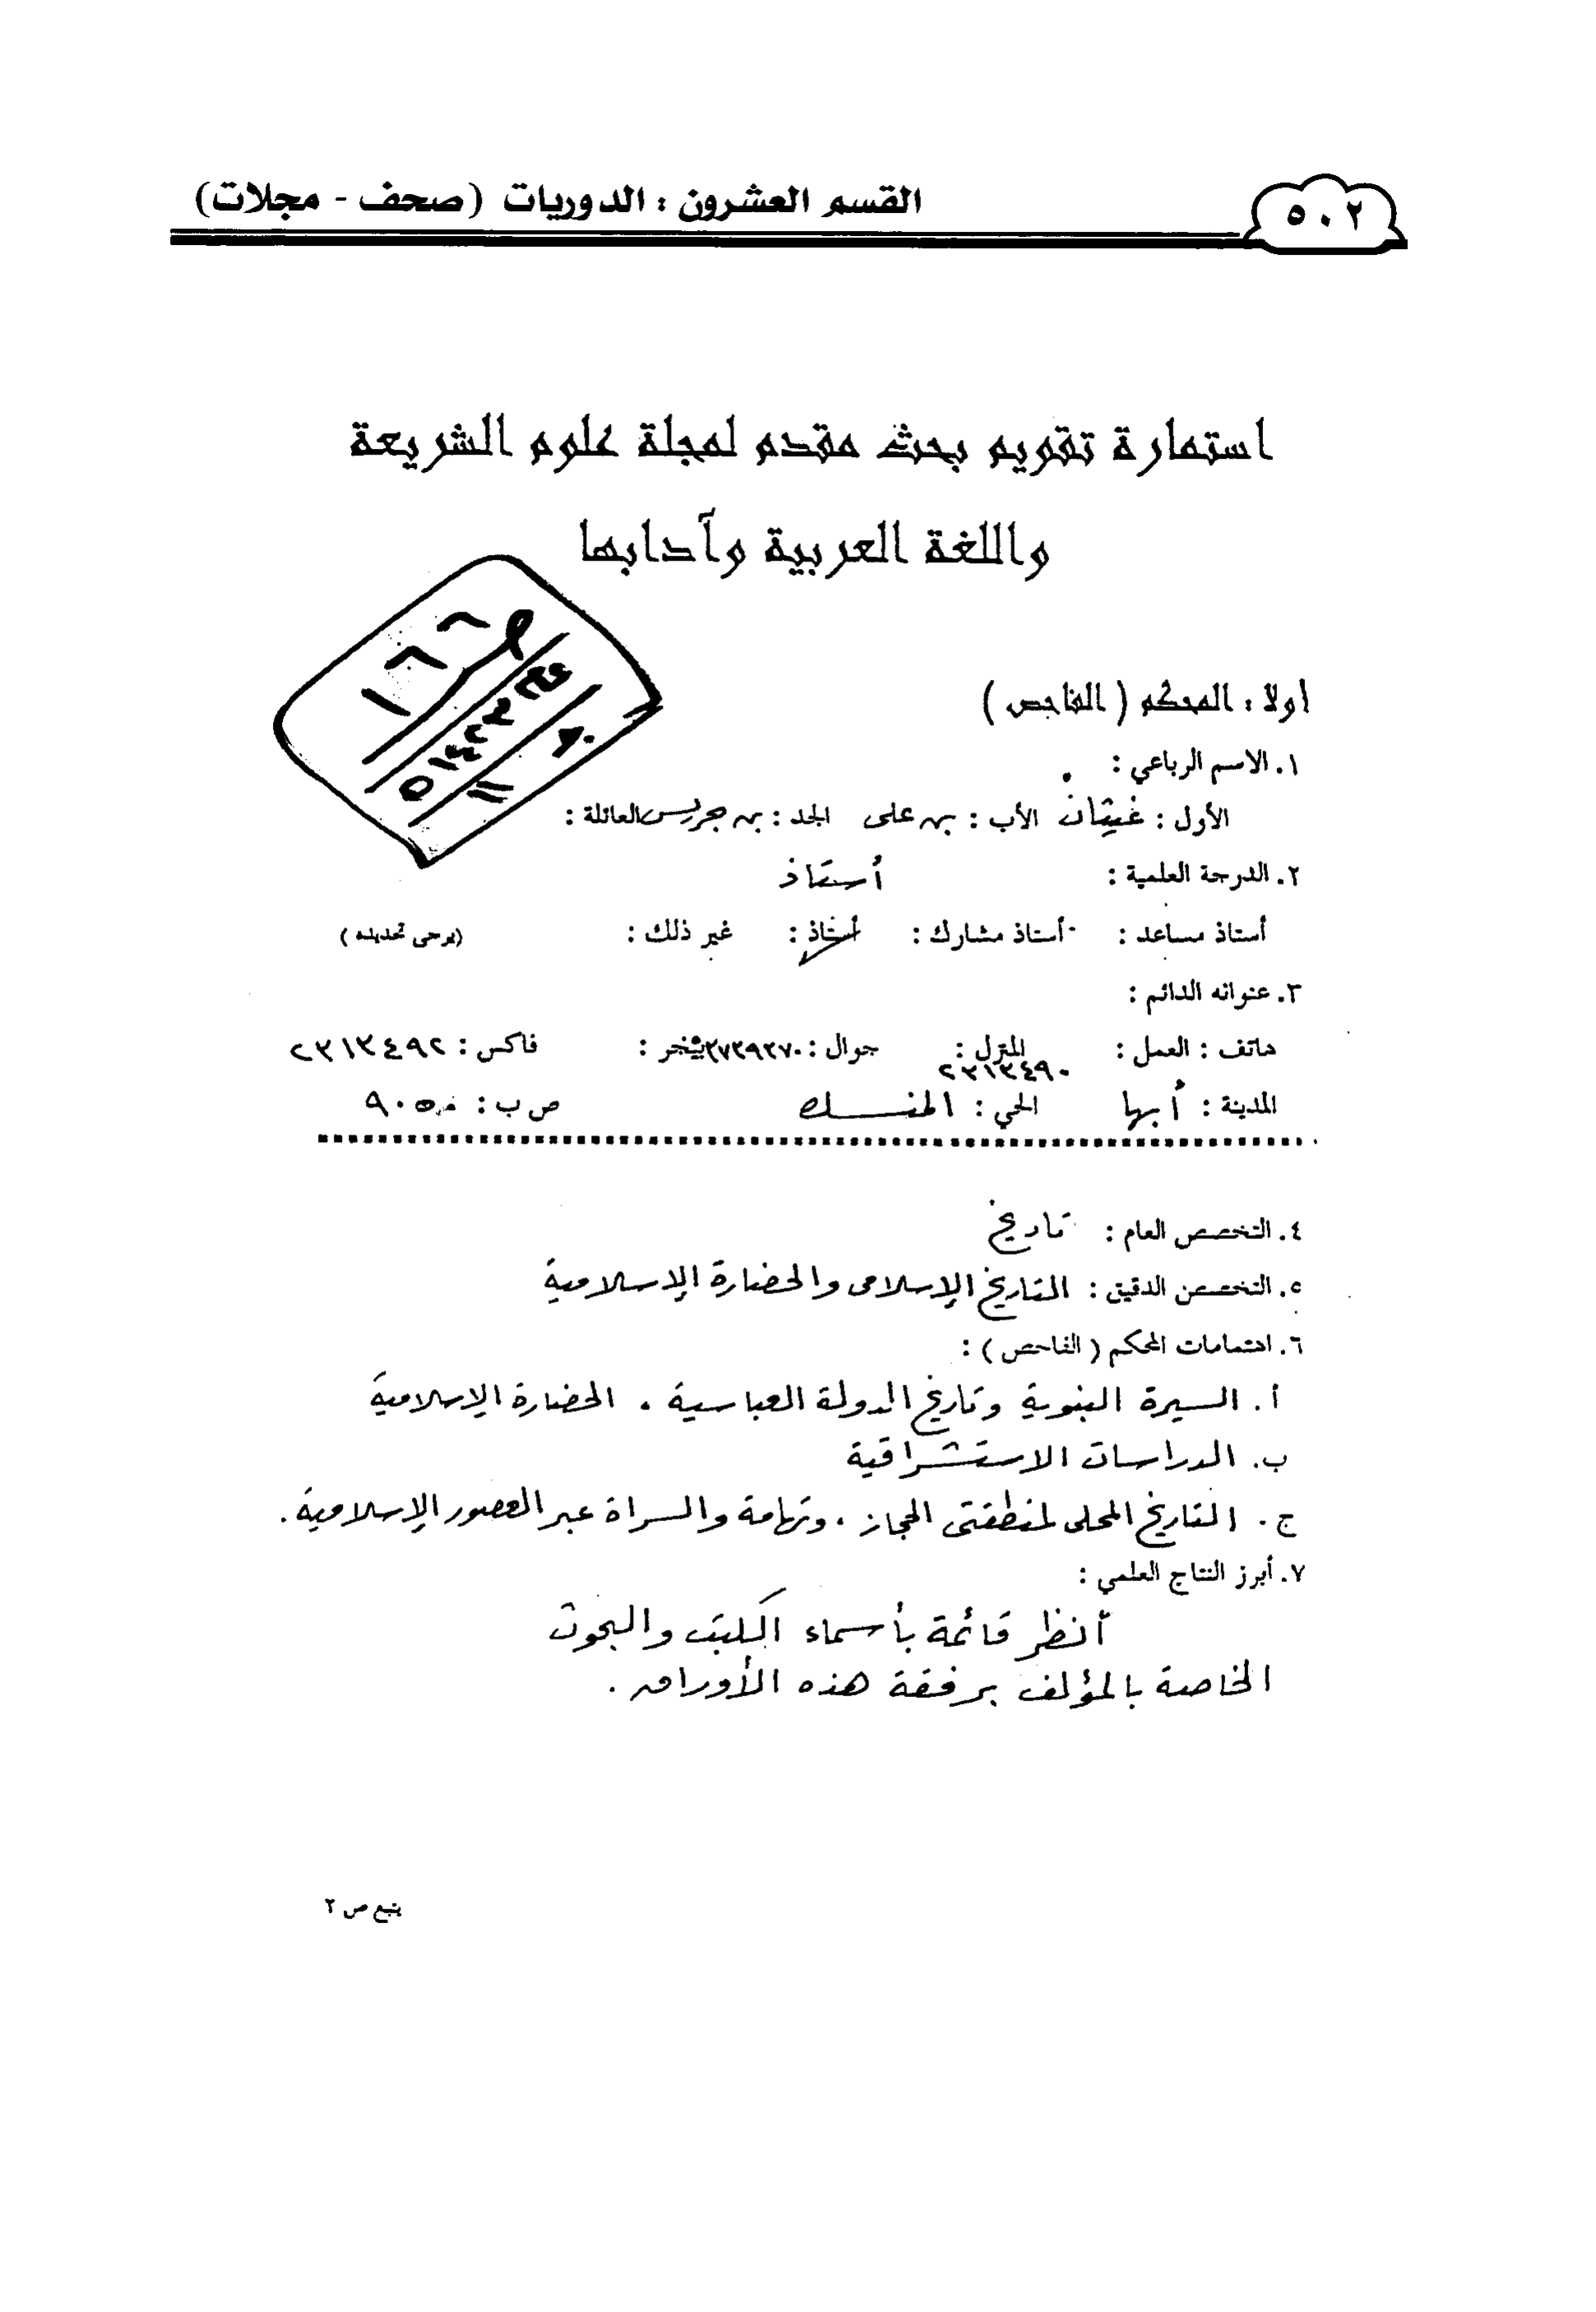 ٥٠٢
القسم العشرون : الدوريات (صحف - مجلات)
استمارة تقويم بحث مقدم لمجلة علوم الشريعة
واللغة العربية وآدابها
اولا : المحكم ( الفاحص )
١. الاسم الرباعي :
الأول : غيثان الأب : بن علي الجد : بن جريس العائلة :
٢. الدرجة العلمية : أستاذ
أستاذ مساعد : أستاذ مشارك : أستاذ : غير ذلك : (يرجى تحديده)
٣. عنوانه الدائم :
هاتف : العمل : المنزل : ٢٣١٣٤٩٠ جوال : فاكس : ٢٣١٣٤٩٢
المدينة : أبها الحي : المنسك ص ب : ٩٠٥٠
٤. التخصص العام : تاريخ
٥. التخصص الدقيق : التاريخ الإسلامي والحضارة الإسلامية
٦. اهتمامات المحكم ( الفاحص ) :
أ. السيرة النبوية وتاريخ الدولة العباسية . الحضارة الإسلامية
ب. الدراسات الاستشراقية
ج. التاريخ المحلي لمنطقتي الحجاز ، وتهامة والسراة عبر العصور الإسلامية .
٧. أبرز النتاج العلمي :
أنظر قائمة بأسماء الكتب والبحوث
الخاصة بالمؤلف برفقة هذه الأوراق .
يتبع ص ٢